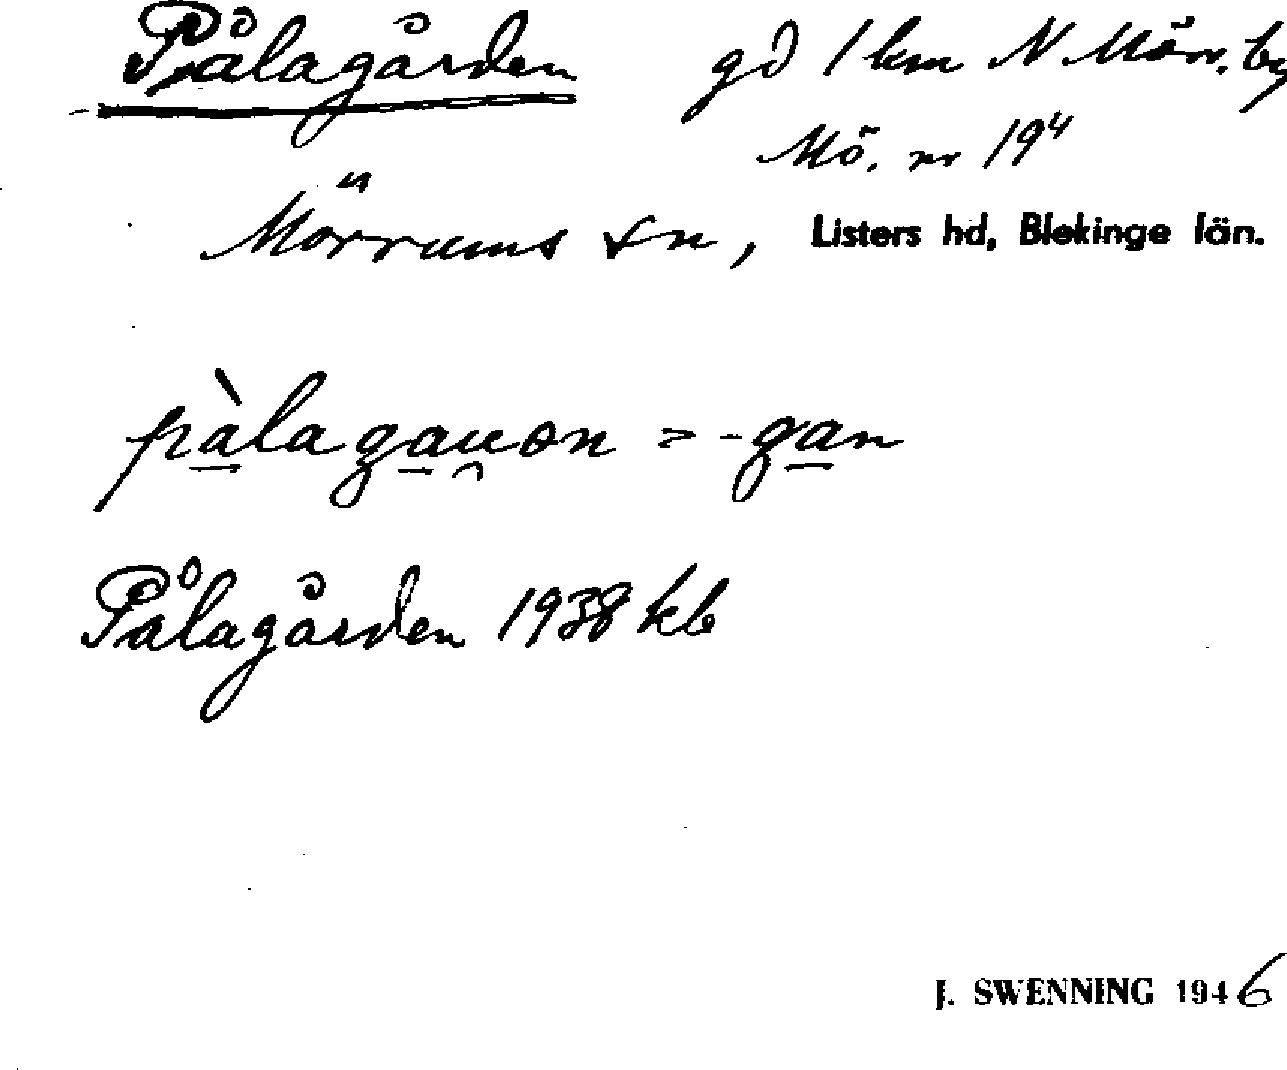 Pålagården gd 1 km N Mörr. by
Mö. nr 19⁴
Mörrums sn, Listers hd, Blekinge län.
pàlagau̯ən = -gan
Pålagården 1938 kb
J. SWENNING 1946